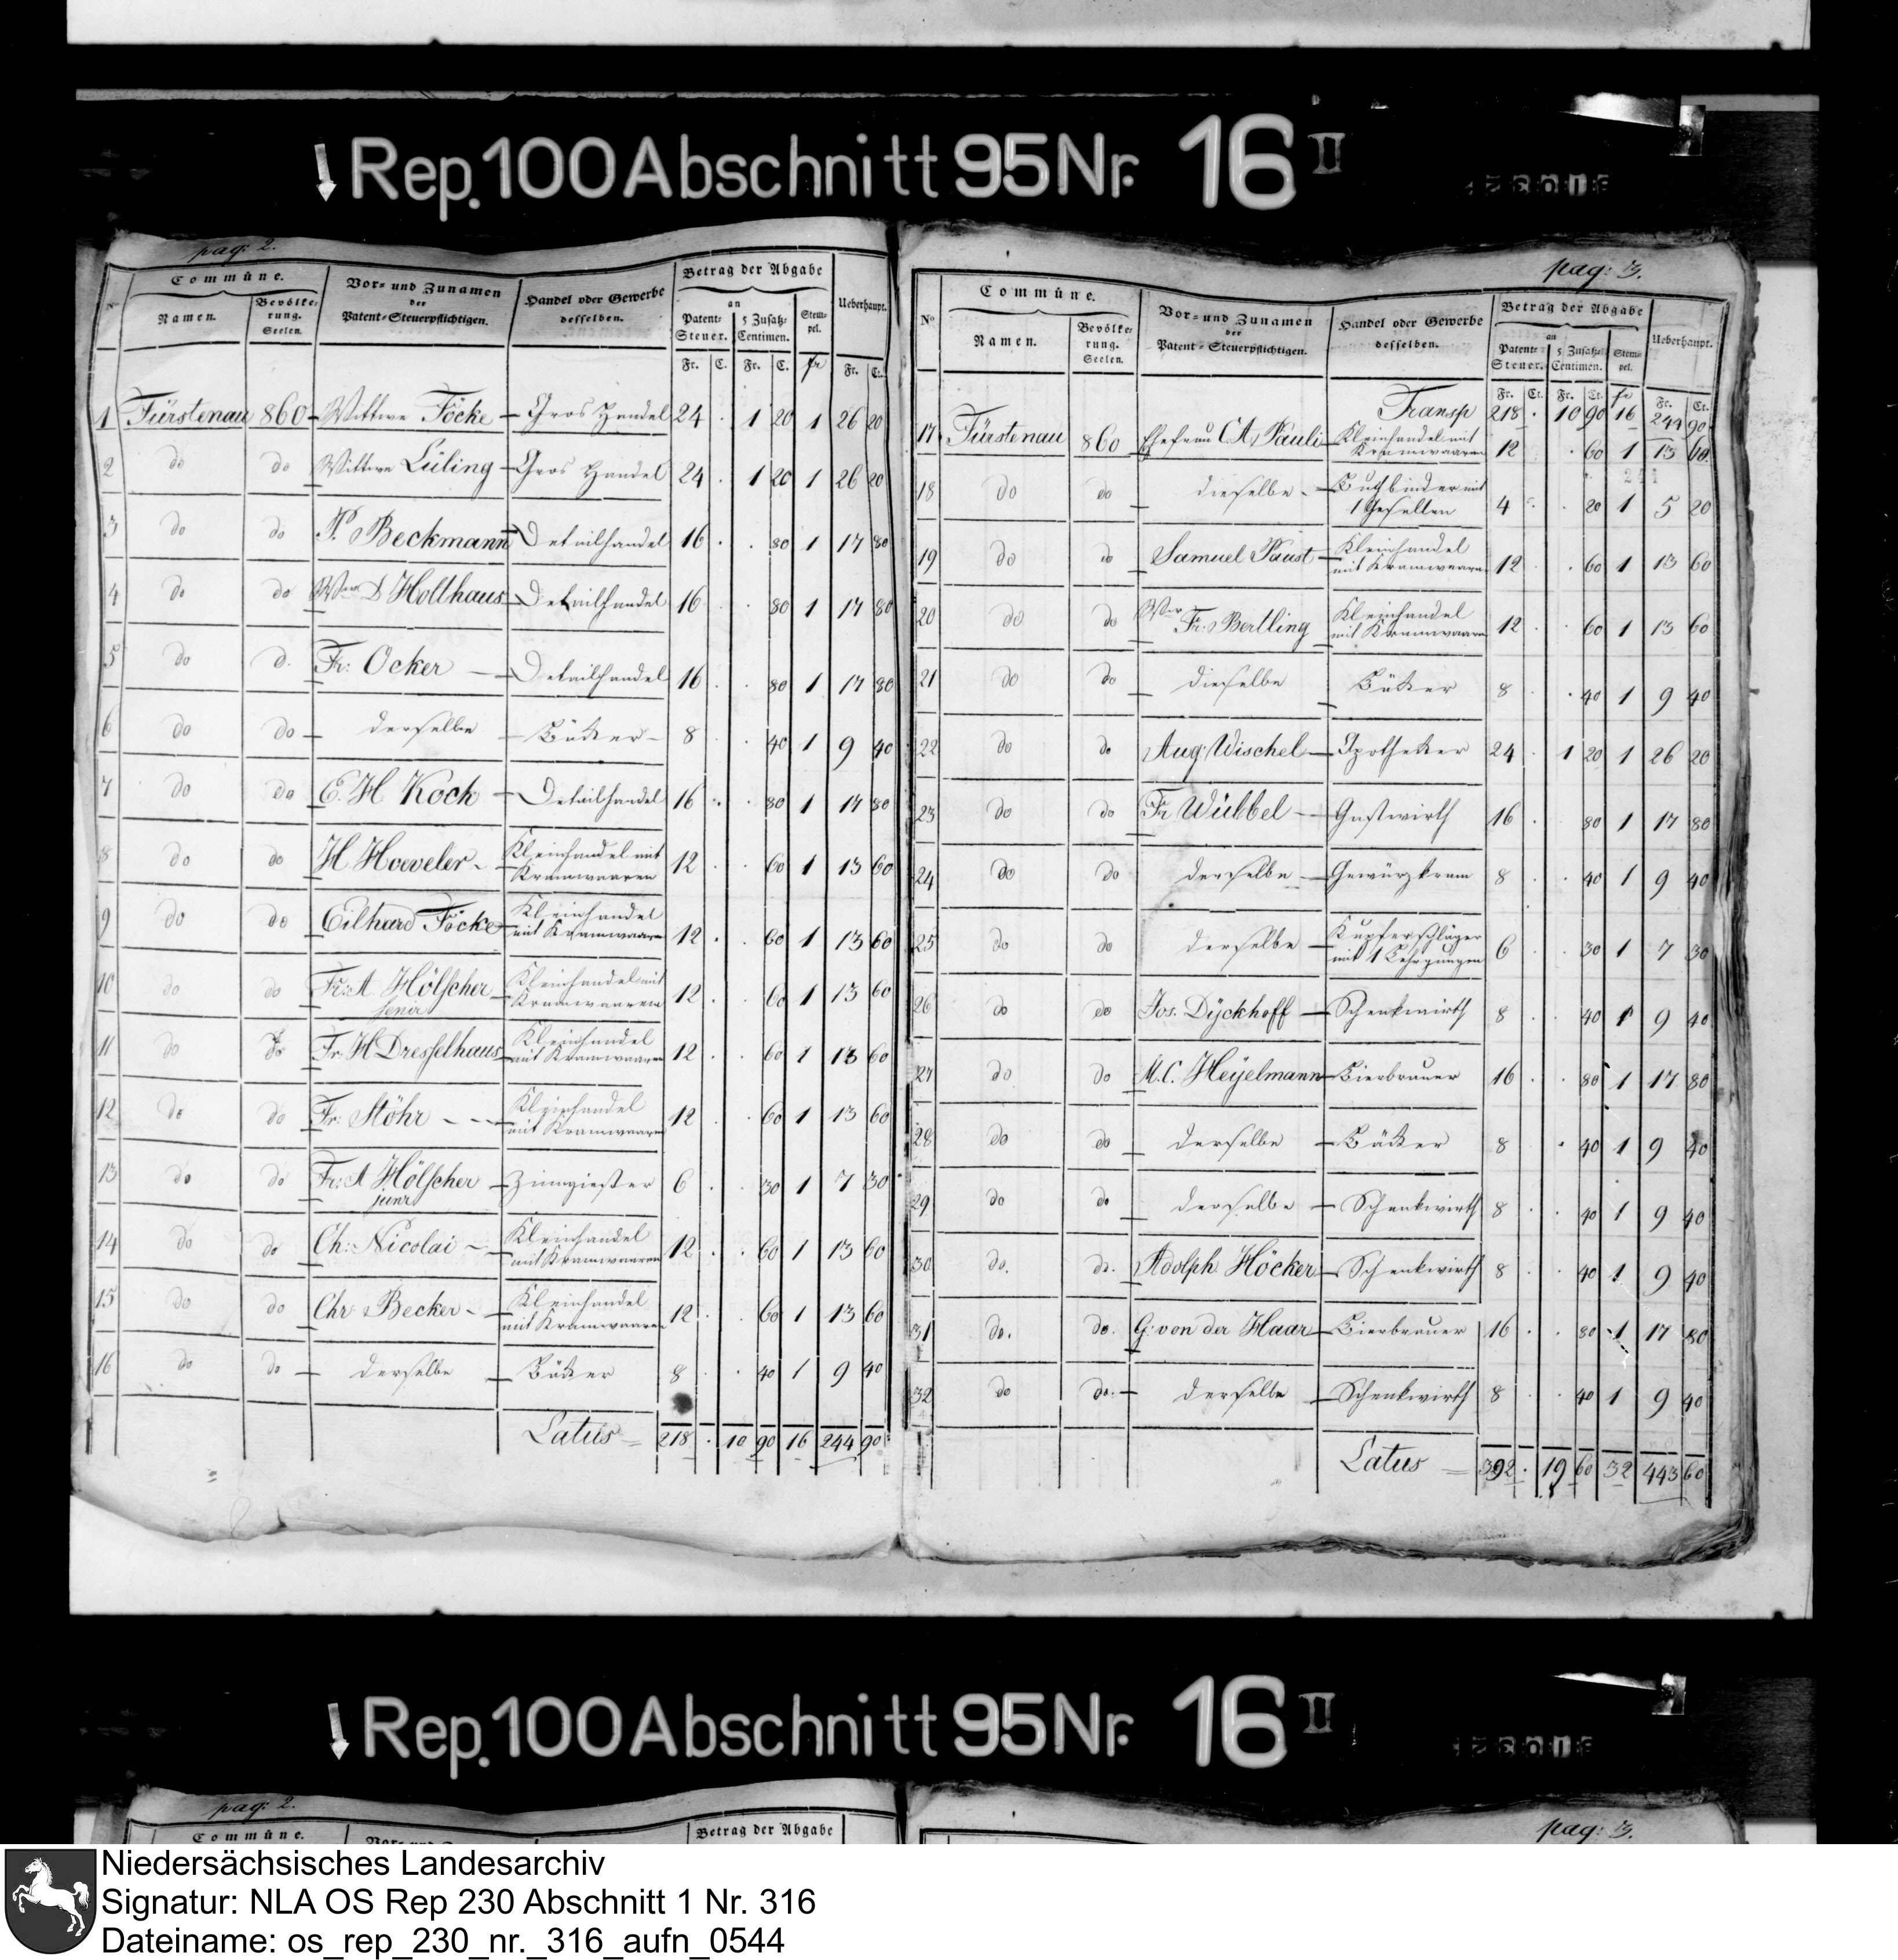 Rep. 100 Abschnitt 95 Nr. 16 II
pag: 2.
No
Commüne.
Namen.
Bevölke=
rung.
Seelen.
Vor= und Zunamen
der
Patent=Steuerpflichtigen.
Handel oder Gewerbe
desselben.
Betrag der Abgabe
an
Patent=
Steuer.
5 Zusatz=
Centimen.
Stem=
pel.
Ueberhaupt.
Fr. C. Fr. C. fr Fr. Ct.
1 Fürstenau 860 Wittwe Föcke Gros Handel 24 . 1 20 1 26 20
2 do do Wittwe Lüling Gros Handel 24 . 1 20 1 26 20
3 do do P. Beckmann Detailhandel 16 . . 80 1 17 80
4 do do Wwe D Holthaus Detailhandel 16 . . 80 1 17 80
5 do d. Fr: Ocker Detailhandel 16 . . 80 1 17 80
6 do do derselbe Bäcker 8 . . 40 1 9 40
7 do do E. H Kock Detailhandel 16 . . 80 1 17 80
8 do do H. Hoeveler Kleinhandel mit
Kramwaaren 12 . . 60 1 13 60
9 do do Eilhard Föcke Kleinhandel
mit Kramwaaren 12 . . 60 1 13 60
10 do do Fr: A Hölscher
senior
Kleinhandel mit
Kramwaaren 12 . . 60 1 13 60
11 do do Fr. H Dresselhaus Kleinhandel
mit Kramwaaren 12 . . 60 1 13 60
12 do do Fr: Stöhr Kleinhandel
mit Kramwaaren 12 . . 60 1 13 60
13 do do Fr: A Hölscher
junr
Zinngießer 6 . . 30 1 7 30
14 do do Ch: Nicolai Kleinhandel
mit Kramwaaren 12 . . 60 1 13 60
15 do do Chr Becker Kleinhandel
mit Kramwaaren 12 . . 60 1 13 60
16 do do derselbe Bäcker 8 . . 40 1 9 40
Latus 218 . 10 90 16 244 90
pag: 3.
No
Commüne.
Namen.
Bevölke=
rung.
Seelen.
Vor= und Zunamen
der
Patent=Steuerpflichtigen.
Handel oder Gewerbe
desselben.
Betrag der Abgabe
an
Patent=
Steuer.
5 Zusatz=
Centimen.
Stem=
pel.
Ueberhaupt.
Fr. Ct. Fr. Ct. fr Fr. Ct.
Transp 218 . 10 90 16 244 90
17 Fürstenau 860 Ehefrau C A, Pauli Kleinhandel mit
Kramwaaren 12 . 60 1 13 60
18 do do dieselbe Buchbinder mit
1 Gesellen 4 . . 20 1 5 20
19 do do Samuel Paust Kleinhandel
mit Kramwaaren 12 . 60 1 13 60
20 do do Wwe
Fr. Bertling Kleinhandel
mit Kramwaaren 12 . . 60 1 13 60
21 do do dieselbe Bäcker 8 . 40 1 9 40
22 do do Aug: Wischel Apotheker 24 . 1 20 1 26 20
23 do do Fr Wübbel Gastwirth 16 . 80 1 17 80
24 do do derselbe Gewürzkram 8 . . 40 1 9 40
25 do do derselbe Kupferschläger
mit 1 Lehrjungen 6 . . 30 1 7 30
26 do do Jos. Dyckhoff Schenkwirth 8 . . 40 1 9 40
27 do do M. C. Heyelmann Bierbrauer 16 . . 80 1 17 80
28 do do derselbe Bäcker 8 . 40 1 9 40
29 do do derselbe Schenkwirth 8 . . 40 1 9 40
30 do. do. Adolph Höcker Schenkwirth 8 . . 40 1 9 40
31 do. do. G: von der Haar Bierbrauer 16 . . 80 1 17 80
32 do do. derselbe Schenkwirth 8 . . 40 1 9 40
Latus 392 . 19 60 32 443 60
Rep. 100 Abschnitt 95 Nr. 16 II
pag: 2.
Commüne.
Betrag der Abgabe
pag: 3.
Niedersächsisches Landesarchiv
Signatur: NLA OS Rep 230 Abschnitt 1 Nr. 316
Dateiname: os_rep_230_nr._316_aufn_0544